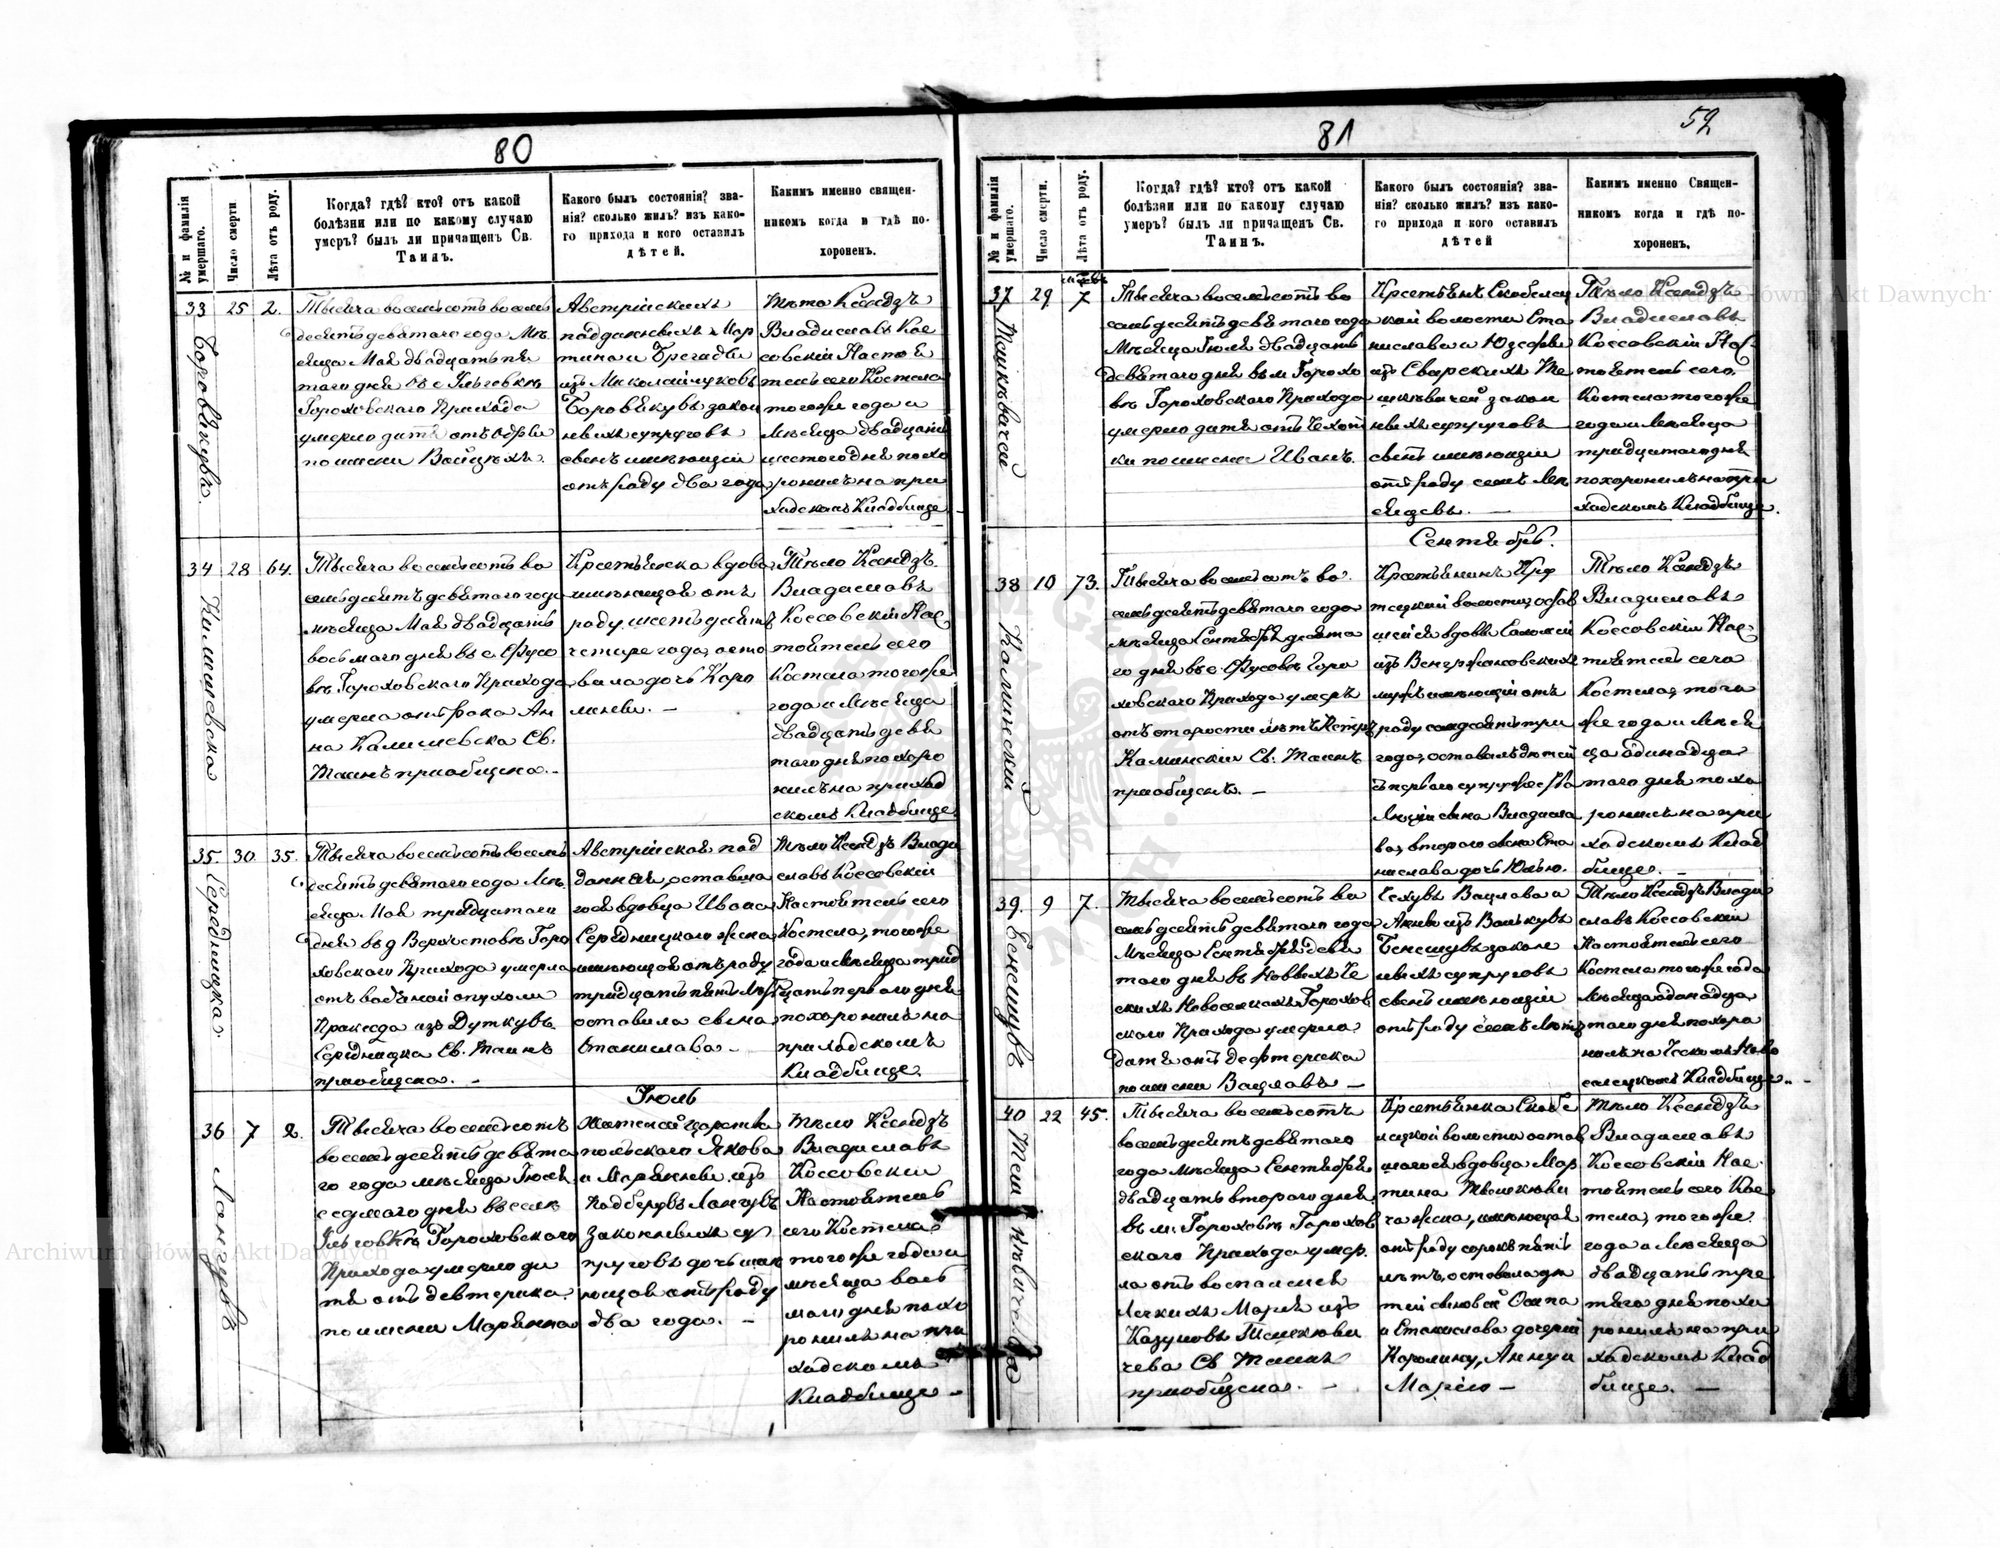 80
№ и фамилія умершаго.
Число смерти.
Лѣта отъ роду.
Когда? гдѣ? кто? отъ какой
болѣзни или по какому случаю
умеръ? былъ ли причащенъ Св.
Таинъ.
Какого былъ состоянія? зва-
нія? сколько жилъ? изъ како-
го прихода и кого оставилъ
дѣтей.
Какимъ именно священ-
никомъ когда и гдѣ по-
хороненъ.
33
25
2.
Тысяча восемьсотъ восемь
десятъ девятаго года Мѣ
сяца Мая двадцать пя
таго дня въ с
Гороховскаго Прихода
умерло дитя отъ
по имени
Австрійскихъ
подданныхъ Мар
тина и
изъ
закон
ныхъ супруговъ
сынъ имѣющій
отъ роду два года
Тѣло Ксендзъ
Владиславъ Кос
совскій Настоя
тель сего Костела
того же года и
Мѣсяца двадцать
шестого дня похо
ронилъ на при
ходскомъ Кладбище
34
28
64.
Тысяча восемьсотъ во
семьдесятъ девятаго года
мѣсяца Мая двадцать
восьмаго дня въ с. Фусо
въ Гороховскаго Прихода
умерла отъ рака Ан
на Калишевска Св.
Таинъ пріобщена. –
Крестьянка вдова
имѣющая отъ
роду шестьдесятъ
четыре года, оста
вила дочь Каро
лину. –
Тѣло Ксендзъ
Владиславъ
Коссовскій Нас
тоятель сего
Костела того же
года и Мѣсяца
двадцать девя
таго дня похоро
нилъ на приход
скомъ Кладбище
35.
30
35.
Середницка.
Тысяча восемьсотъ восемь
десятъ девятаго года Мѣ
сяца Мая тридцатаго
дня въ д Верхоставъ Горо
ховскаго Прихода умерла
отъ водяной опухоли
Праксѣда изъ Дуткувъ
Середницка Св. Таинъ
пріобщена. –
Австрійская под
данная, оставша
гося вдовца Ивана
Середницкаго жена
имѣющая отъ роду
тридцать пять лѣтъ
оставила сына
Станислава –
Тѣло Ксендзъ Влади
славъ Коссовскій
Настоятель сего
Костела, того же
года и мѣсяца трид
цать перваго дня
похоронилъ на
приходскомъ
Кладбище.
Іюль
36
7
2.
Лангувъ
Тысяча восемьсотъ
восемьдесятъ девята
го года мѣсяца Іюля
седмаго дня въ селѣ
Гороховскаго
Прихода умерло ди
тя отъ дефтерика
по имени Маріанна
Царства
польскаго Якова
и Маріанны изъ
Подберувъ Лангувъ
законныхъ су
пруговъ дочь имѣ
ющая отъ роду
два года. –
Тѣло Ксендзъ
Владиславъ
Коссовскій
Настоятель
сего Костела
того же года и
мѣсяца вось
маго дня похо
ронилъ на при
ходскомъ
Кладбище –
81
52
№ и фамилія умершаго.
Число смерти.
Лѣта отъ роду.
Когда? гдѣ? кто? отъ какой
болѣзни или по какому случаю
умеръ? былъ ли причащенъ Св.
Таинъ.
Какого былъ состоянія? зва-
нія? сколько жилъ? изъ како-
го прихода и кого оставилъ
дѣтей
Какимъ именно Священ-
никомъ когда и гдѣ по-
хороненъ.
37
29
7
Тысяча восемьсотъ во
семьдесятъ девятаго года
Мѣсяца Іюля двадцать
девятаго дня въ м Горохо
въ Гороховскаго Прихода
умерло дитя отъ Чахот
ки по имени Иванъ.
Скобелец
кой волости Ста
нислава и Юзефы
изъ Сварскихъ
закон
ныхъ супруговъ
сынъ имѣющій
отъ роду семь Мѣ
сяцевъ. –
Тѣло Ксендзъ
Владиславъ
Коссовскій Нас
тоятель сего
Костела того же
года и Мѣсяца
тридцатаго дня
похоронилъ на при
ходскомъ Кладбище.
Сентябрь.
38
10
73.
Калинскій
Тысяча восемьсотъ во
семьдесятъ девятаго года
мѣсяца Сентября десята
го дня въ с. Фусовъ Горо
ховскаго Прихода умеръ
отъ старости лѣтъ Петръ
Калинскій Св. Таинъ
пріобщенъ. –
Крестьянинъ
волости, остав
шейся вдовы Саломеи
изъ Венгржановскихъ
мужъ имѣющій отъ
роду семдесятъ три
года, оставилъ дѣтей
съ перваго супружества
сына Владисла
ва, втораго сына Ста
нислава дочь Юлію.
Тѣло Ксендзъ
Владиславъ
Коссовскій Нас
тоятель сего
Костела, того
же года и Мѣся
ца одинадца
таго дня похо
ронилъ на при
ходскомъ Клад
бище. –
39.
9
7.
Бенешувъ
Тысяча восемьсотъ во
семьдесятъ девятаго года
Мѣсяца Сентября девя
таго дня въ Новыхъ Че
скихъ Новоселкахъ Горохов
скаго Прихода умерло
дитя отъ дефтерика
по имени Вацлавъ –
Чеховъ Вацлава и
Анны изъ Волькувъ
Бенешувъ закон
ныхъ супруговъ
сынъ имѣющій
отъ роду семь лѣтъ
Тѣло Ксендзъ Влади
славъ Коссовскій
Настоятель сего
Костела того же года
Мѣсяца одинадца
таго дня похоро
нилъ на Ческомъ Ново
селецкомъ Кладбище. –
40
22
45.
Тысяча восемьсотъ
восемьдесятъ девятаго
года мѣсяца Сентября
двадцать втораго дня
въ м. Гороховъ Горохов
скаго Прихода умер
ла отъ воспаленія
Легкихъ Марія изъ
Казуновъ
чева Св Таинъ
пріобщена. –
Крестьянка Скобе
лецкой волости остав
шагося вдовца Мар
тина
ча жена, имѣющая
отъ роду сорокъ пять
лѣтъ, оставила дѣ
тей сыновей Осипа
и Станислава дочерей
Каролину, Анну и
Марію –
Тѣло Ксендзъ
Владиславъ
Коссовскій Нас
тоятель сего Кос
тела, того же
года и Мѣсяца
двадцать тре
тяго дня похо
ронилъ на при
ходскомъ Клад
бище. –
Archiwum Główne Akt Dawnych
Archiwum Główne Akt Dawnych